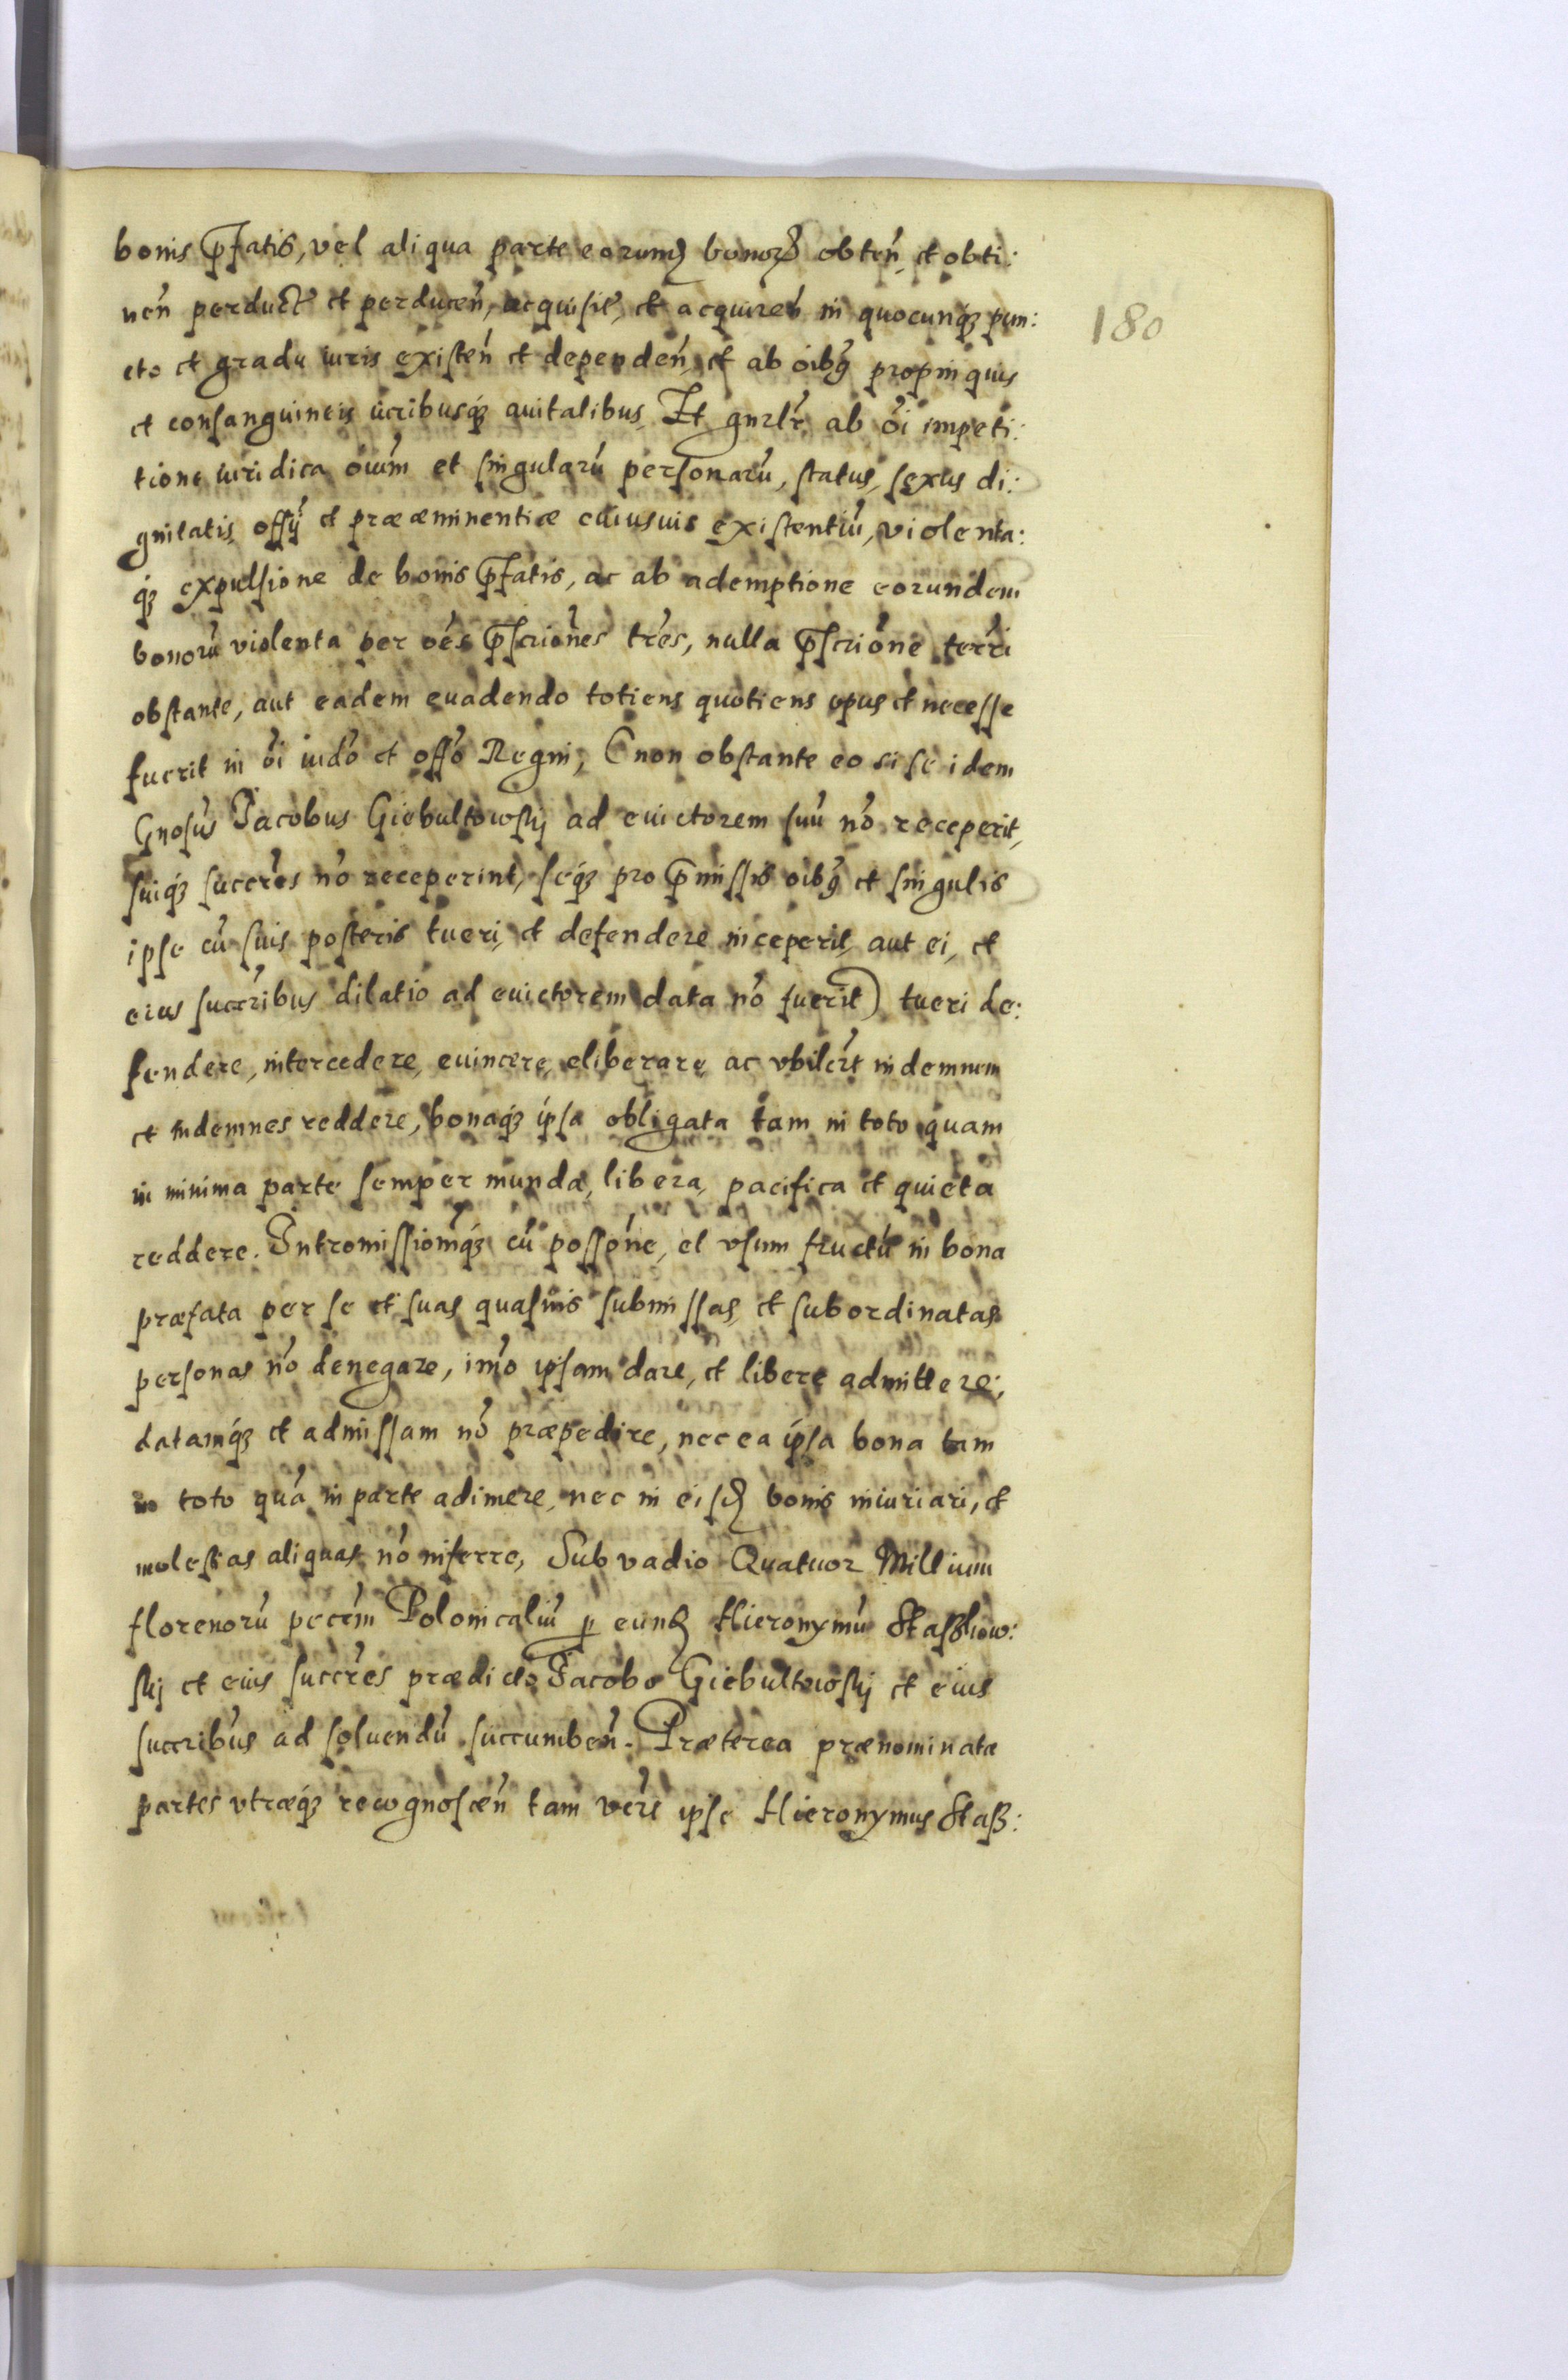 bonis p̄fatis, vel aliqua parte eorumd bonorꝝ obteń, et obti:
neń perduct et perduceń, acquisit, et acquireń in quocunqꝫ pun:
180
cto et gradu iuris existeń et dependeń, et ab oibꝰ propinquis
et consanguineis uťribusqꝫ auitalibus. Et gnrlr̃ ab oi impeti:
tione iuridica oium et singularū personarū, status, sexus di:
gnitatis, offy et præeminentiæ cuiusuis existentiū, violenta:
qꝫ expulsione de bonis p̄fatis, ac ab ademptione eorundem
bonorū violenta per oēs p̄scriōnes trēs, nulla p̄scriōne terri
obstante, aut eadem euadendo totiens quotiens opus et necesse
fuerit in oi iudō et offō Regni, (non obstante eo si se idem
Gnosus Jacobus Giebultowsky ad euictorem suū nō receperit,
suiqꝫ succr̃es nō receperint, seqꝫ pro p̄missis oibꝰ et singulis
ipse cū suis posteris tueri, et defendere inceperit, aut ei, et
eius succr̃ibus dilatio ad euictorem data nō fuerit) tueri de:
fendere, intercedere, euincere, eliberare, ac vbilt indemnem
et indemnes reddere, bonaqꝫ ipsa obligata tam in toto quam
in minima parte semper munda, libera, pacifica et quieta
reddere. Intromissiōmqꝫ cū possōne, et vsum fructū in bona
præfata per se et suas quasuis submissas, et subordinatas
personas nō denegare, imō ipsam dare, et libere admittere:,
datamqꝫ et admissam nō præpedire, nec ea ipsa bona tam
in toto quā in parte adimere, nec in eisd bonis iniuriari, et
molestias aliquas nō inferre, Sub vadio Quatuor Millium
florenorū pec̄m Polonicaliū ꝑ eund Hieronymū Staszkow:
sky et eius succr̃es prædicto Jacobo Giebultowsky et eius
succr̃ibus ad soluendū succumbeń. Præterea prænominatæ
partes vtræqꝫ recognosceń tam ipse Hieronymus Stasz: